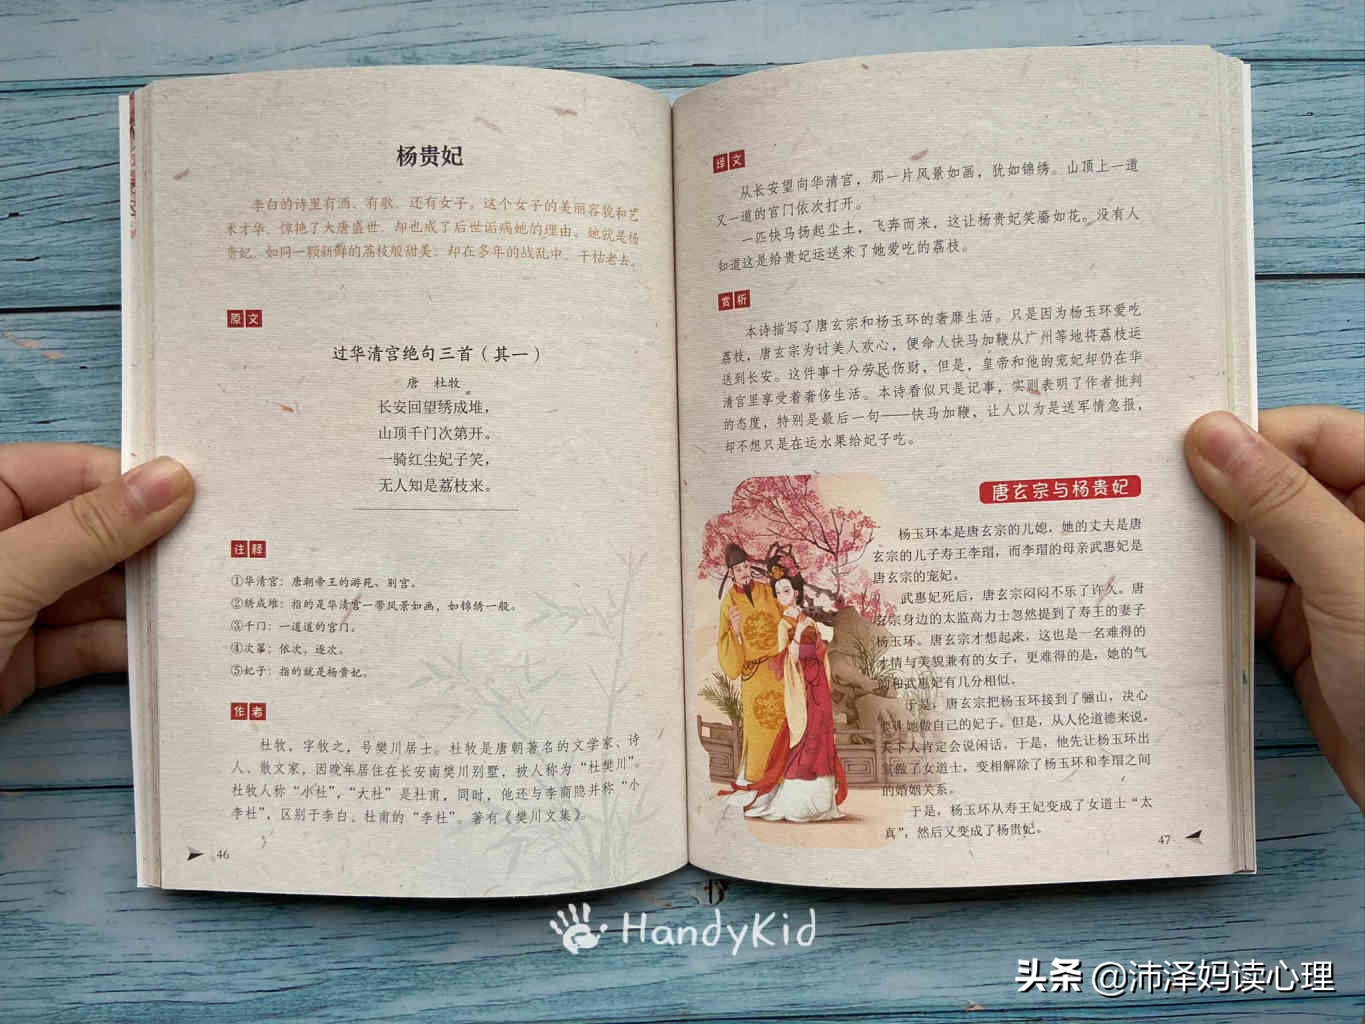 杨贵妃
李白的诗里有酒、有歌、还有女子。这个女子的美丽容貌和艺
术才华，惊艳了大唐盛世，却也成了后世诟病她的理由。她就是杨
贵妃，如同一颗新鲜的荔枝般甜美，却在多年的战乱中，干枯老去。
原文
过华清宫绝句三首（其一）
唐 杜牧
长安回望绣成堆，
山顶千门次第开。
一骑红尘妃子笑，
无人知是荔枝来。
注释
①华清宫：唐朝帝王的游苑、别宫。
②绣成堆：指的是华清宫一带风景如画，如锦绣一般。
③千门：一道道的宫门。
④次第：依次，逐次。
⑤妃子：指的就是杨贵妃。
作者
杜牧，字牧之，号樊川居士。杜牧是唐朝著名的文学家、诗
人、散文家，因晚年居住在长安南樊川别墅，被人称为“杜樊川”。
杜牧人称“小杜”，“大杜”是杜甫，同时，他还与李商隐并称“小
李杜”，区别于李白、杜甫的“李杜”。著有《樊川文集》。
46
译文
从长安望向华清宫，那一片风景如画，犹如锦绣。山顶上一道
又一道的宫门依次打开。
一匹快马扬起尘土，飞奔而来，这让杨贵妃笑靥如花。没有人
知道这是给贵妃运送来了她爱吃的荔枝。
赏析
本诗描写了唐玄宗和杨玉环的奢靡生活。只是因为杨玉环爱吃
荔枝，唐玄宗为讨美人欢心，便命人快马加鞭从广州等地将荔枝运
送到长安。这件事十分劳民伤财，但是，皇帝和他的宠妃却仍在华
清宫里享受着奢侈生活。本诗看似只是记事，实则表明了作者批判
的态度，特别是最后一句——快马加鞭，让人以为是送军情急报，
却不想只是在运水果给妃子吃。
唐玄宗与杨贵妃
杨玉环本是唐玄宗的儿媳，她的丈夫是唐
玄宗的儿子寿王李瑁，而李瑁的母亲武惠妃是
唐玄宗的宠妃。
武惠妃死后，唐玄宗闷闷不乐了许久。唐
玄宗身边的太监高力士忽然提到了寿王的妻子
杨玉环。唐玄宗才想起来，这也是一名难得的
才情与美貌兼有的女子，更难得的是，她的气
和武惠妃有几分相似。
于是，唐玄宗把杨玉环接到了骊山，决心
要让她做自己的妃子。但是，从人伦道德来说，
天下人肯定会说闲话，于是，他先让杨玉环出
家做了女道士，变相解除了杨玉环和李瑁之间
的婚姻关系。
于是，杨玉环从寿王妃变成了女道士“太
真”，然后又变成了杨贵妃。
47
HandyKid
头条 @沛泽妈读心理